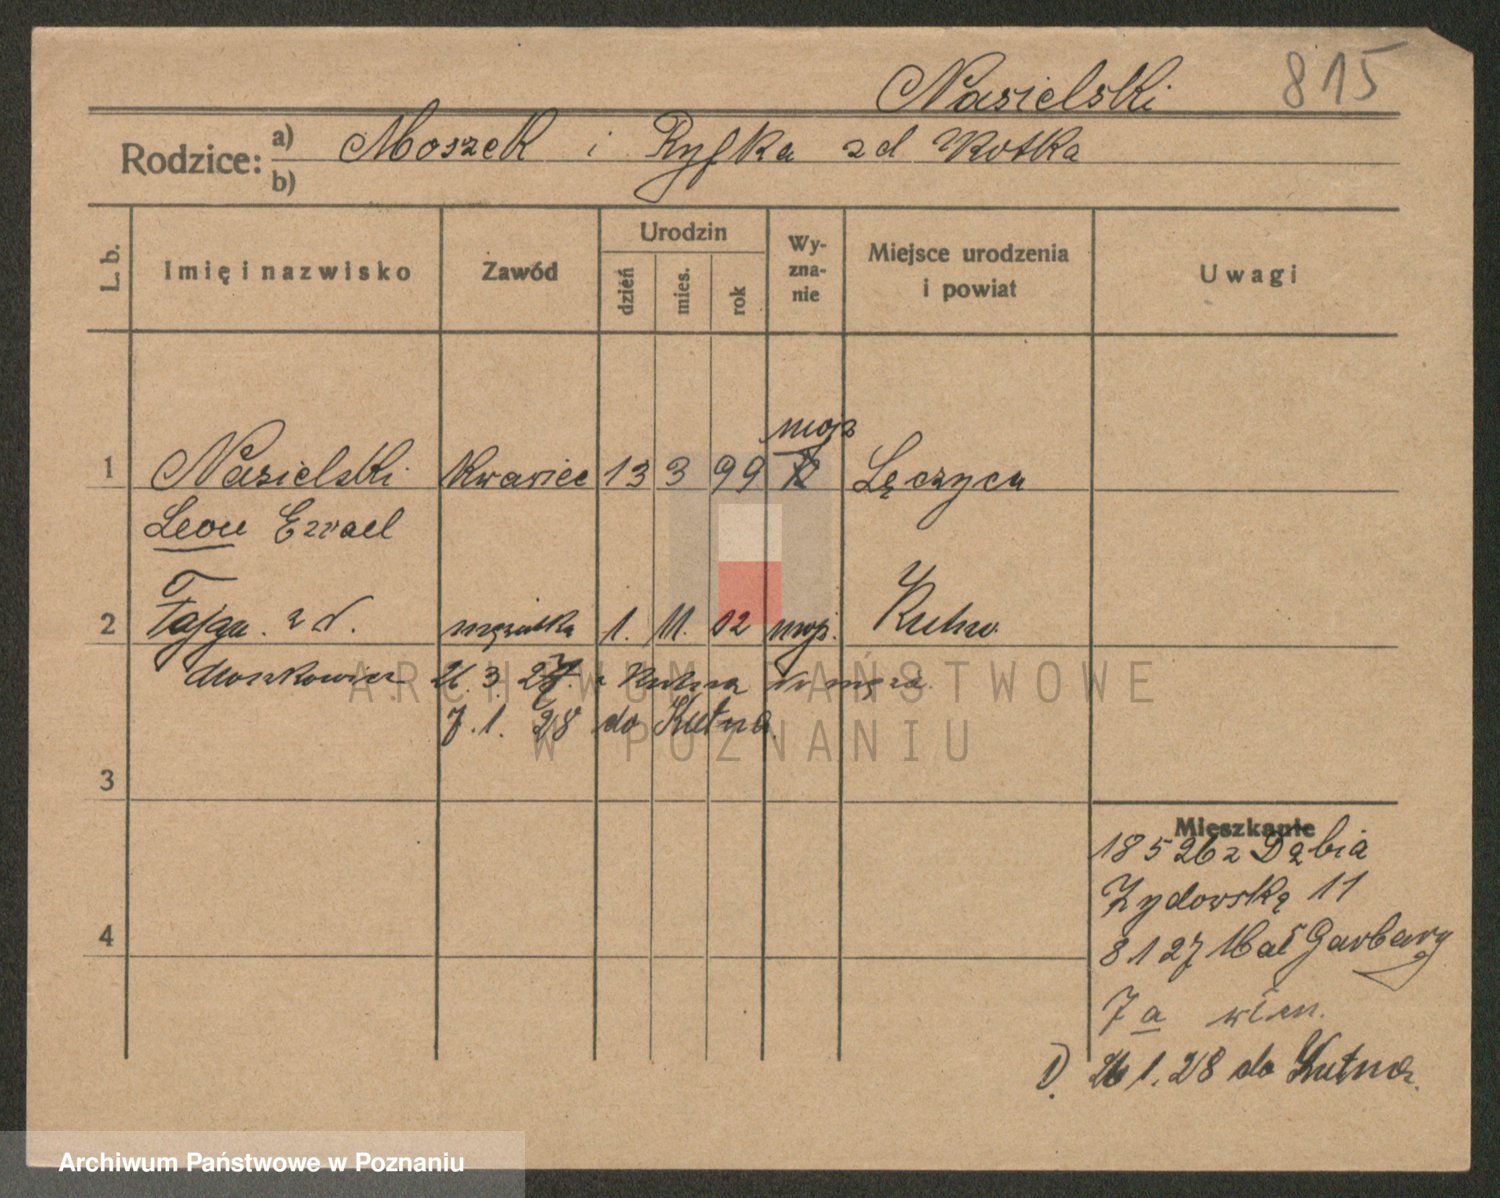 Nasielski 815
Rodzice: a) Moszek i Ryfka zd Kotka
b)
L. b. Imię i nazwisko Zawód Urodzin dzień mies. rok Wyznanie Miejsce urodzenia i powiat Uwagi
mojż
1 Nasielski Krawiec 13 3 99 Łęczyca
Leon Ezrael
2 Fajga z d. mężatka 1. 11. 02 mojż. Kutno
Moszkowicz 21. 3. 27. z Kutna do męża.
7. 1. 28 do Kutna.
3
Mieszkanie
18 5 26 z Dąbia
Żydowska 11
4
8 1 27 Małe Garbary
7a włas.
1). 26 1. 28 do Kutna.
ARCHIWUM PAŃSTWOWE
W POZNANIU
Archiwum Państwowe w Poznaniu